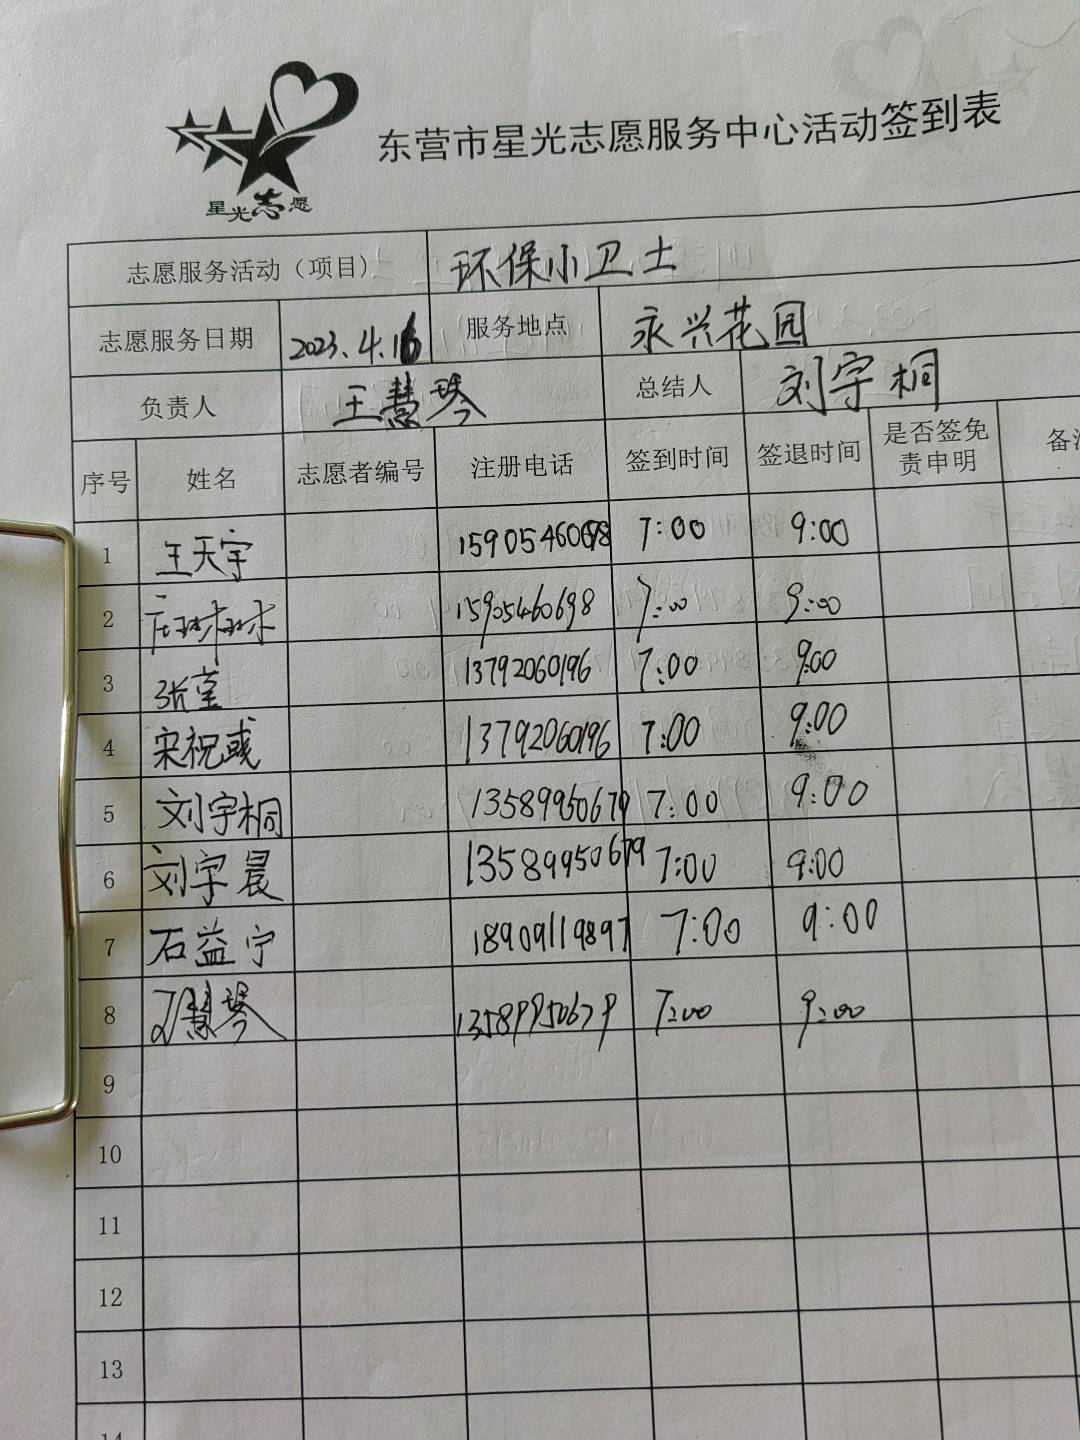 星光志愿
东营市星光志愿服务中心活动签到表
志愿服务活动（项目） 环保小卫士
志愿服务日期 2023.4.16 服务地点 永兴花园
负责人 王慧琴 总结人 刘宇桐
序号 姓名 志愿者编号 注册电话 签到时间 签退时间 是否签免责申明 备
1 王天宇 15905460698 7:00 9:00
2 15905460698 7:00 9:00
3 张莹 13792060196 7:00 9:00
4 宋祝彧 13792060196 7:00 9:00
5 刘宇桐 13589950679 7:00 9:00
6 刘宇晨 13589950679 7:00 9:00
7 石益宁 18909119897 7:00 9:00
8 王慧琴 13589950679 7:00 9:00
9
10
11
12
13